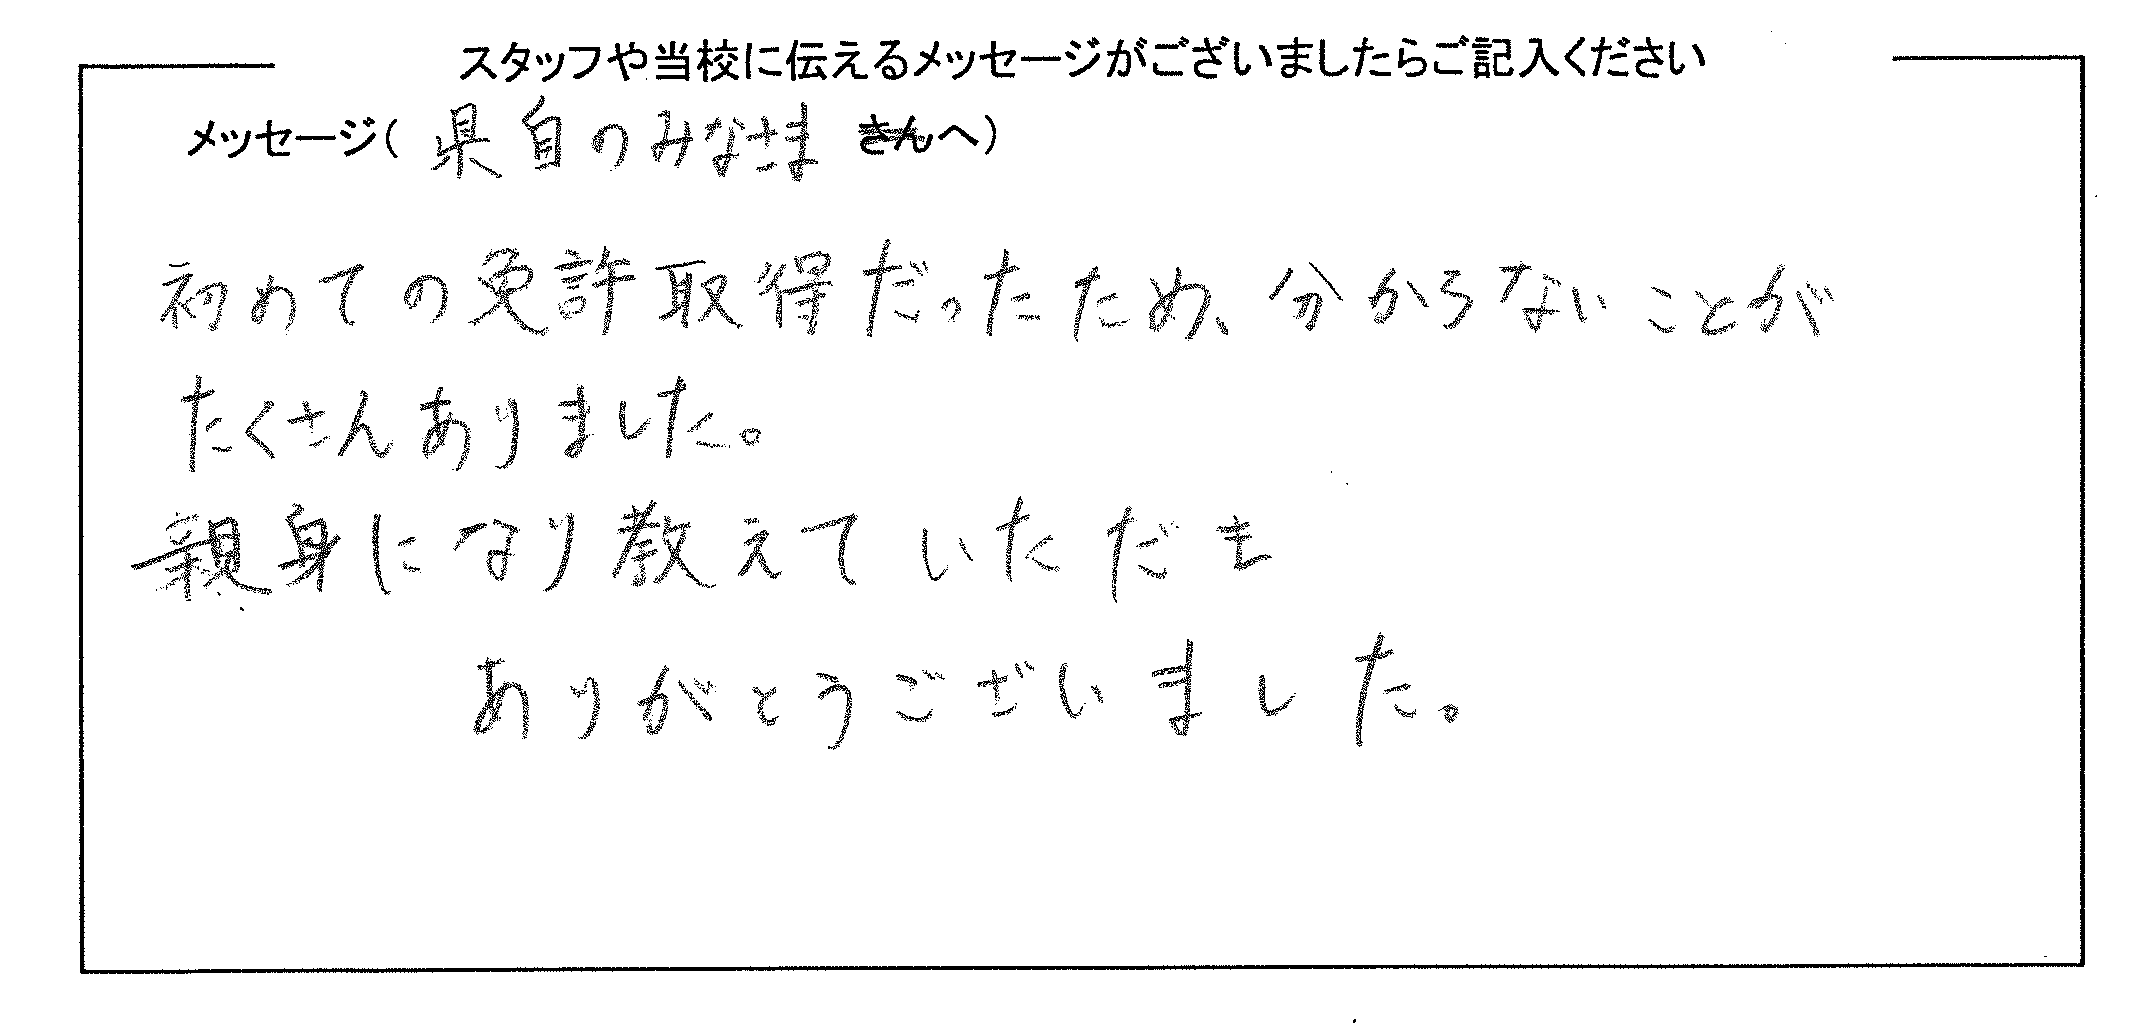 スタッフや当校に伝えるメッセージがございましたらご記入ください
メッセージ( 県自のみなさま さんへ)
初めての免許取得だったため、分からないことが
たくさんありました。
親身になり教えていただき
ありがとうございました。